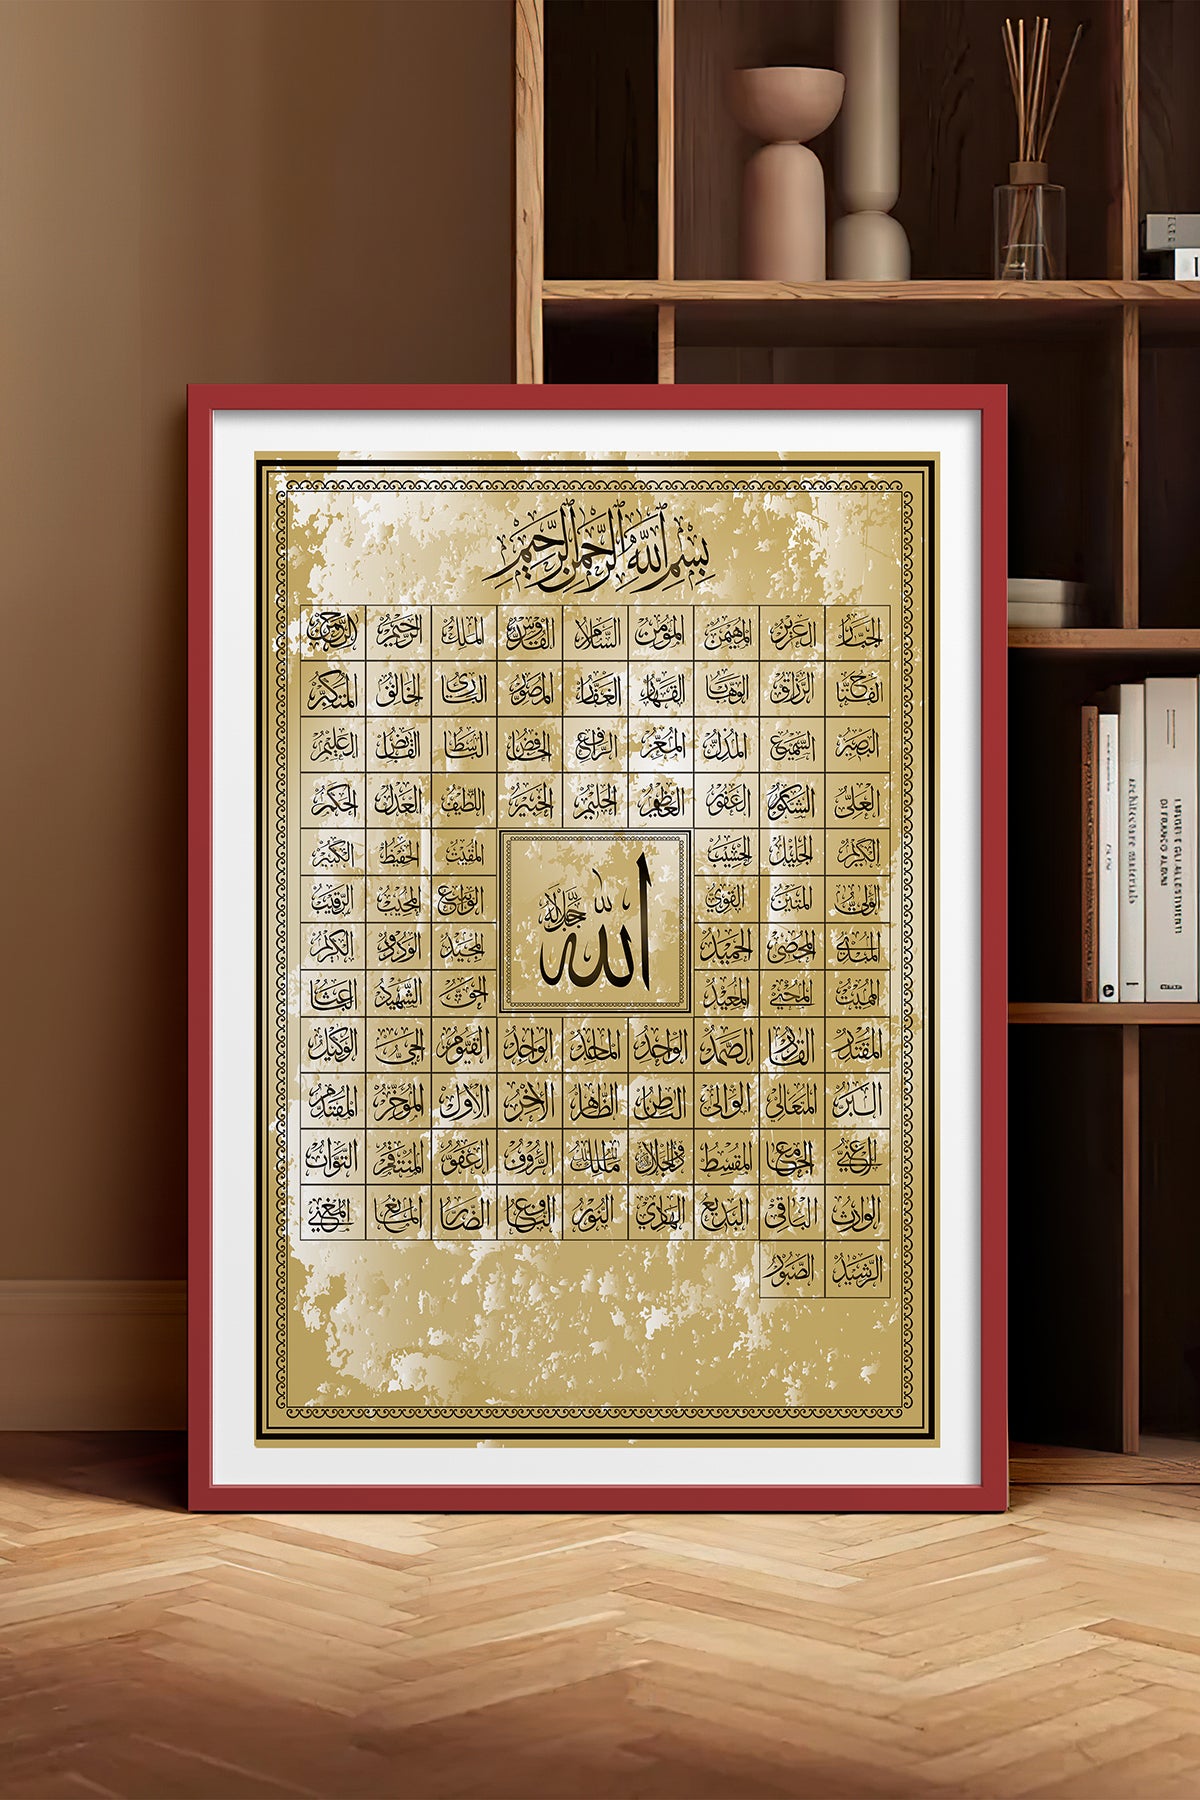 بِسْمِ ٱللَّهِ ٱلرَّحْمَٰنِ ٱلرَّحِيمِ
الجبار العزيز المهيمن المؤمن السلام القدوس الملك الرحيم الرحمن
الفتاح الرزاق الوهاب القهار الغفار المصور البارئ الخالق المتكبر
البصير السميع المذل المعز الرافع الخافض الباسط القابض العليم
العلي الشكور الغفور العظيم الحليم الخبير اللطيف العدل الحكم
الكريم الجليل الحسيب المقيت الحفيظ الكبير
الولي المتين القوي الواسع المجيب الرقيب
المبدئ المحصي الحميد المجيد الودود
المميت المحيي المعيد الحق الشهيد الباعث
الله جل جلاله
المقتدر القادر الصمد الواحد الماجد الواجد القيوم الحي الوكيل
البر المتعالي الوالي الباطن الظاهر الآخر الأول المؤخر المقدم
الغني الجامع المقسط ذو الجلال مالك الملك الرؤوف العفو المنتقم التواب
الوارث الباقي البديع الهادي النور النافع الضار المانع المغني
الرشيد الصبور
Architecture Materials
I MOBILI E GLI ALLESTIMENTI
DI FRANCO ALBINI